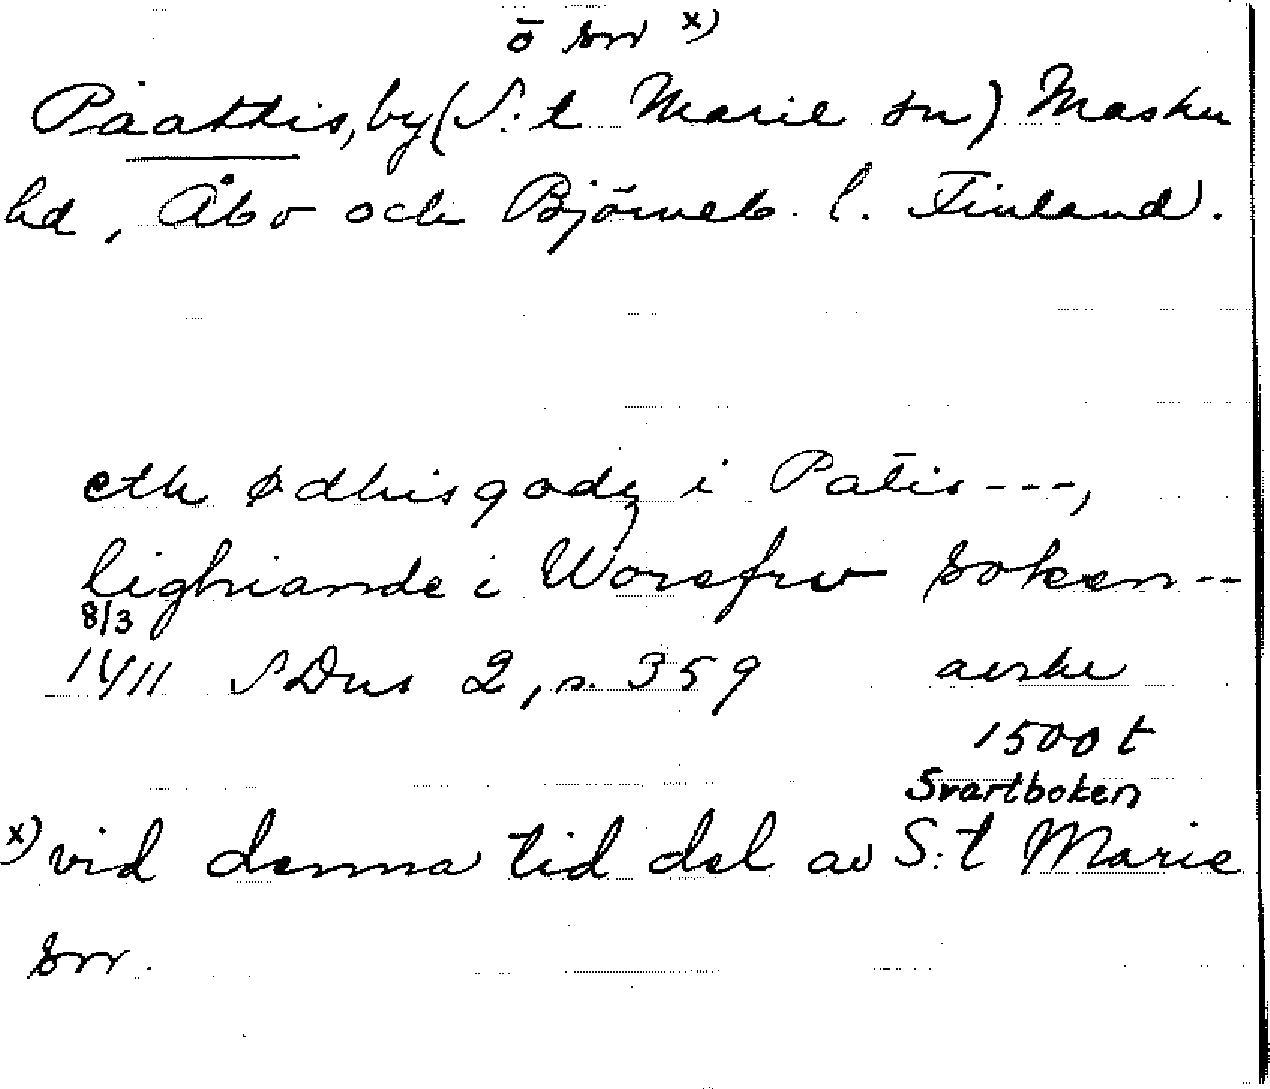 o sn x)
Paattis, by (S:t Marie sn) Masku
hd, Åbo och Björneb. l. Finland.
eth ødhisgodz i Patis ---,
lighiande i Worefrw soken --
8/3
1411 SDns 2, s. 359 avskr
1500 t
Svartboken
x) vid denna tid del av S:t Marie
sn.